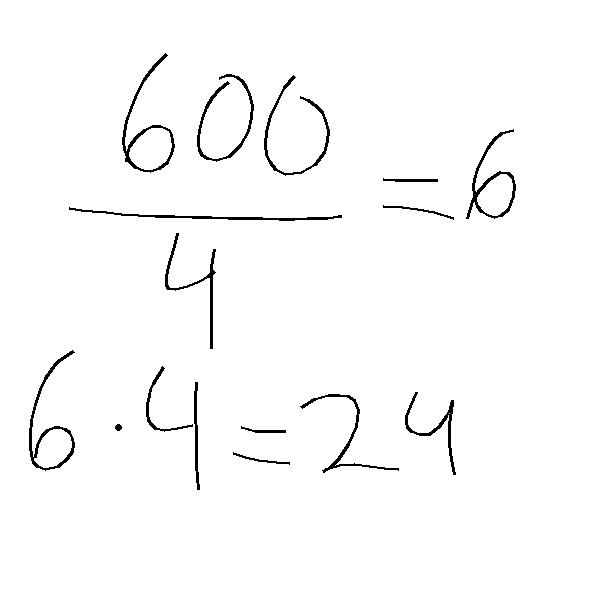 600/4 = 6
6 · 4 = 24